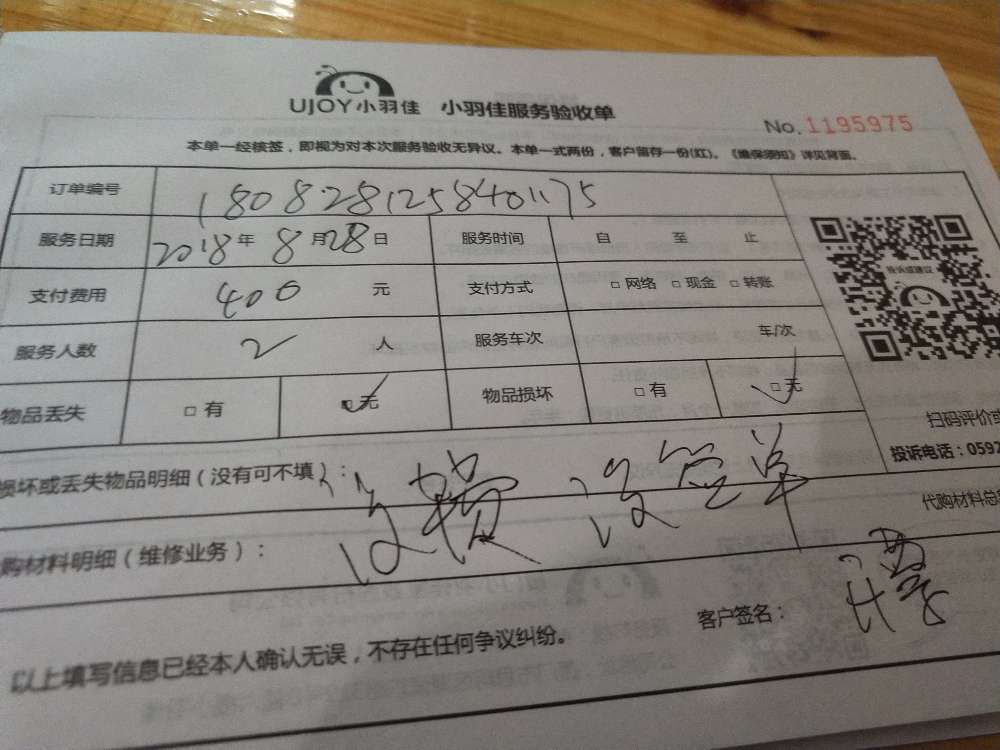 UJOY小羽佳 小羽佳服务验收单
No. 1195975
本单一经核签，即视为对本次服务验收无异议。本单一式两份，客户留存一份(红)。《维保须知》详见背面。
订单编号 1808281258401175
服务日期 2018年 8月28日 服务时间 自 至 止
支付费用 400 元 支付方式 □网络 □现金 □转账
服务人数 2 人 服务车次 车/次
物品丢失 □有 □无 物品损坏 □有 □无
投诉或建议
扫码评价或
投诉电话：0592
损坏或丢失物品明细（没有可不填）：
没签单
购材料明细（维修业务）：
代购材料总
客户签名：
以上填写信息已经本人确认无误，不存在任何争议纠纷。